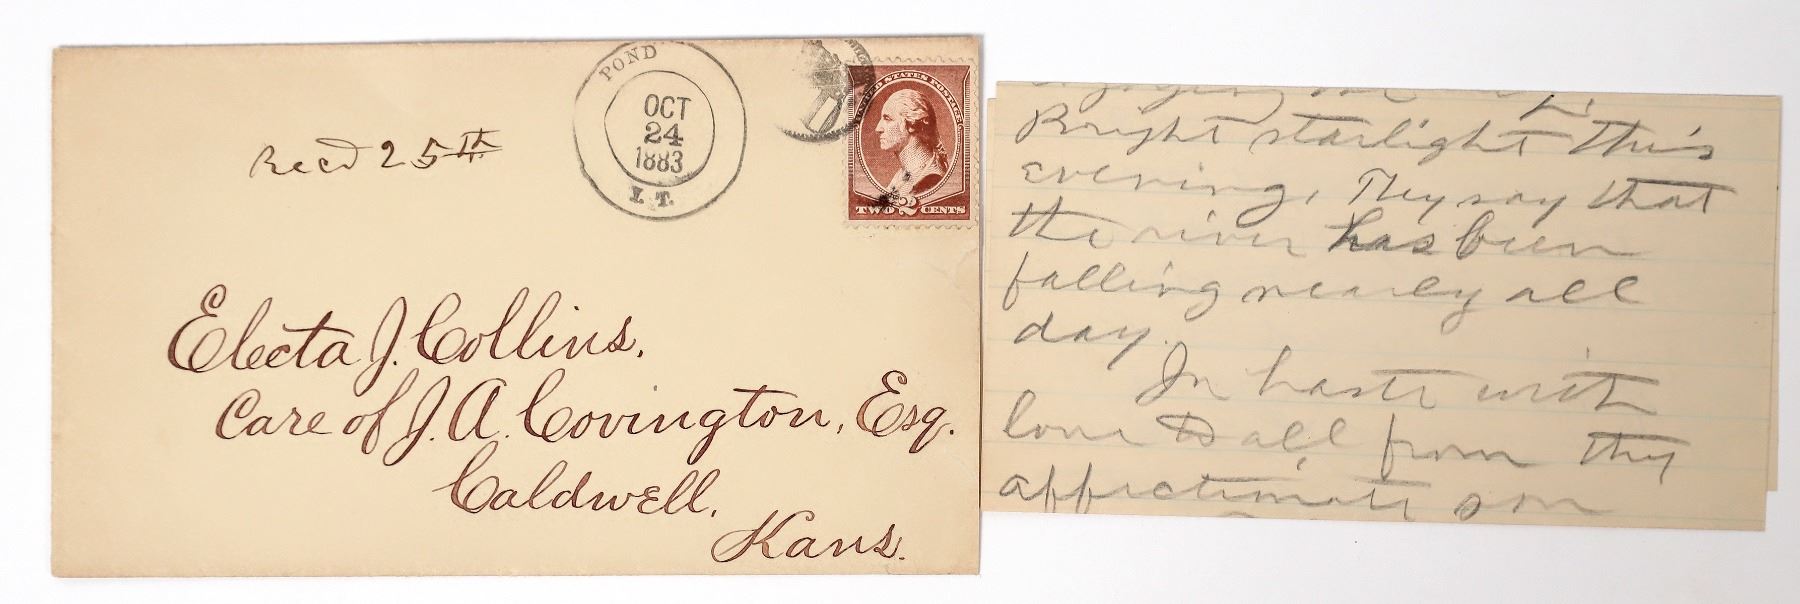 POND
OCT
24
1883
I. T.
UNITED STATES POSTAGE
TWO 2 CENTS
Recd 25th
Electa J. Collins.
Care of J. A. Covington, Esq.
Caldwell,
Kans.
Bright starlight this
evening, They say that
the river has been
falling nearly all
day.
In haste with
love to all from thy
affectionate son